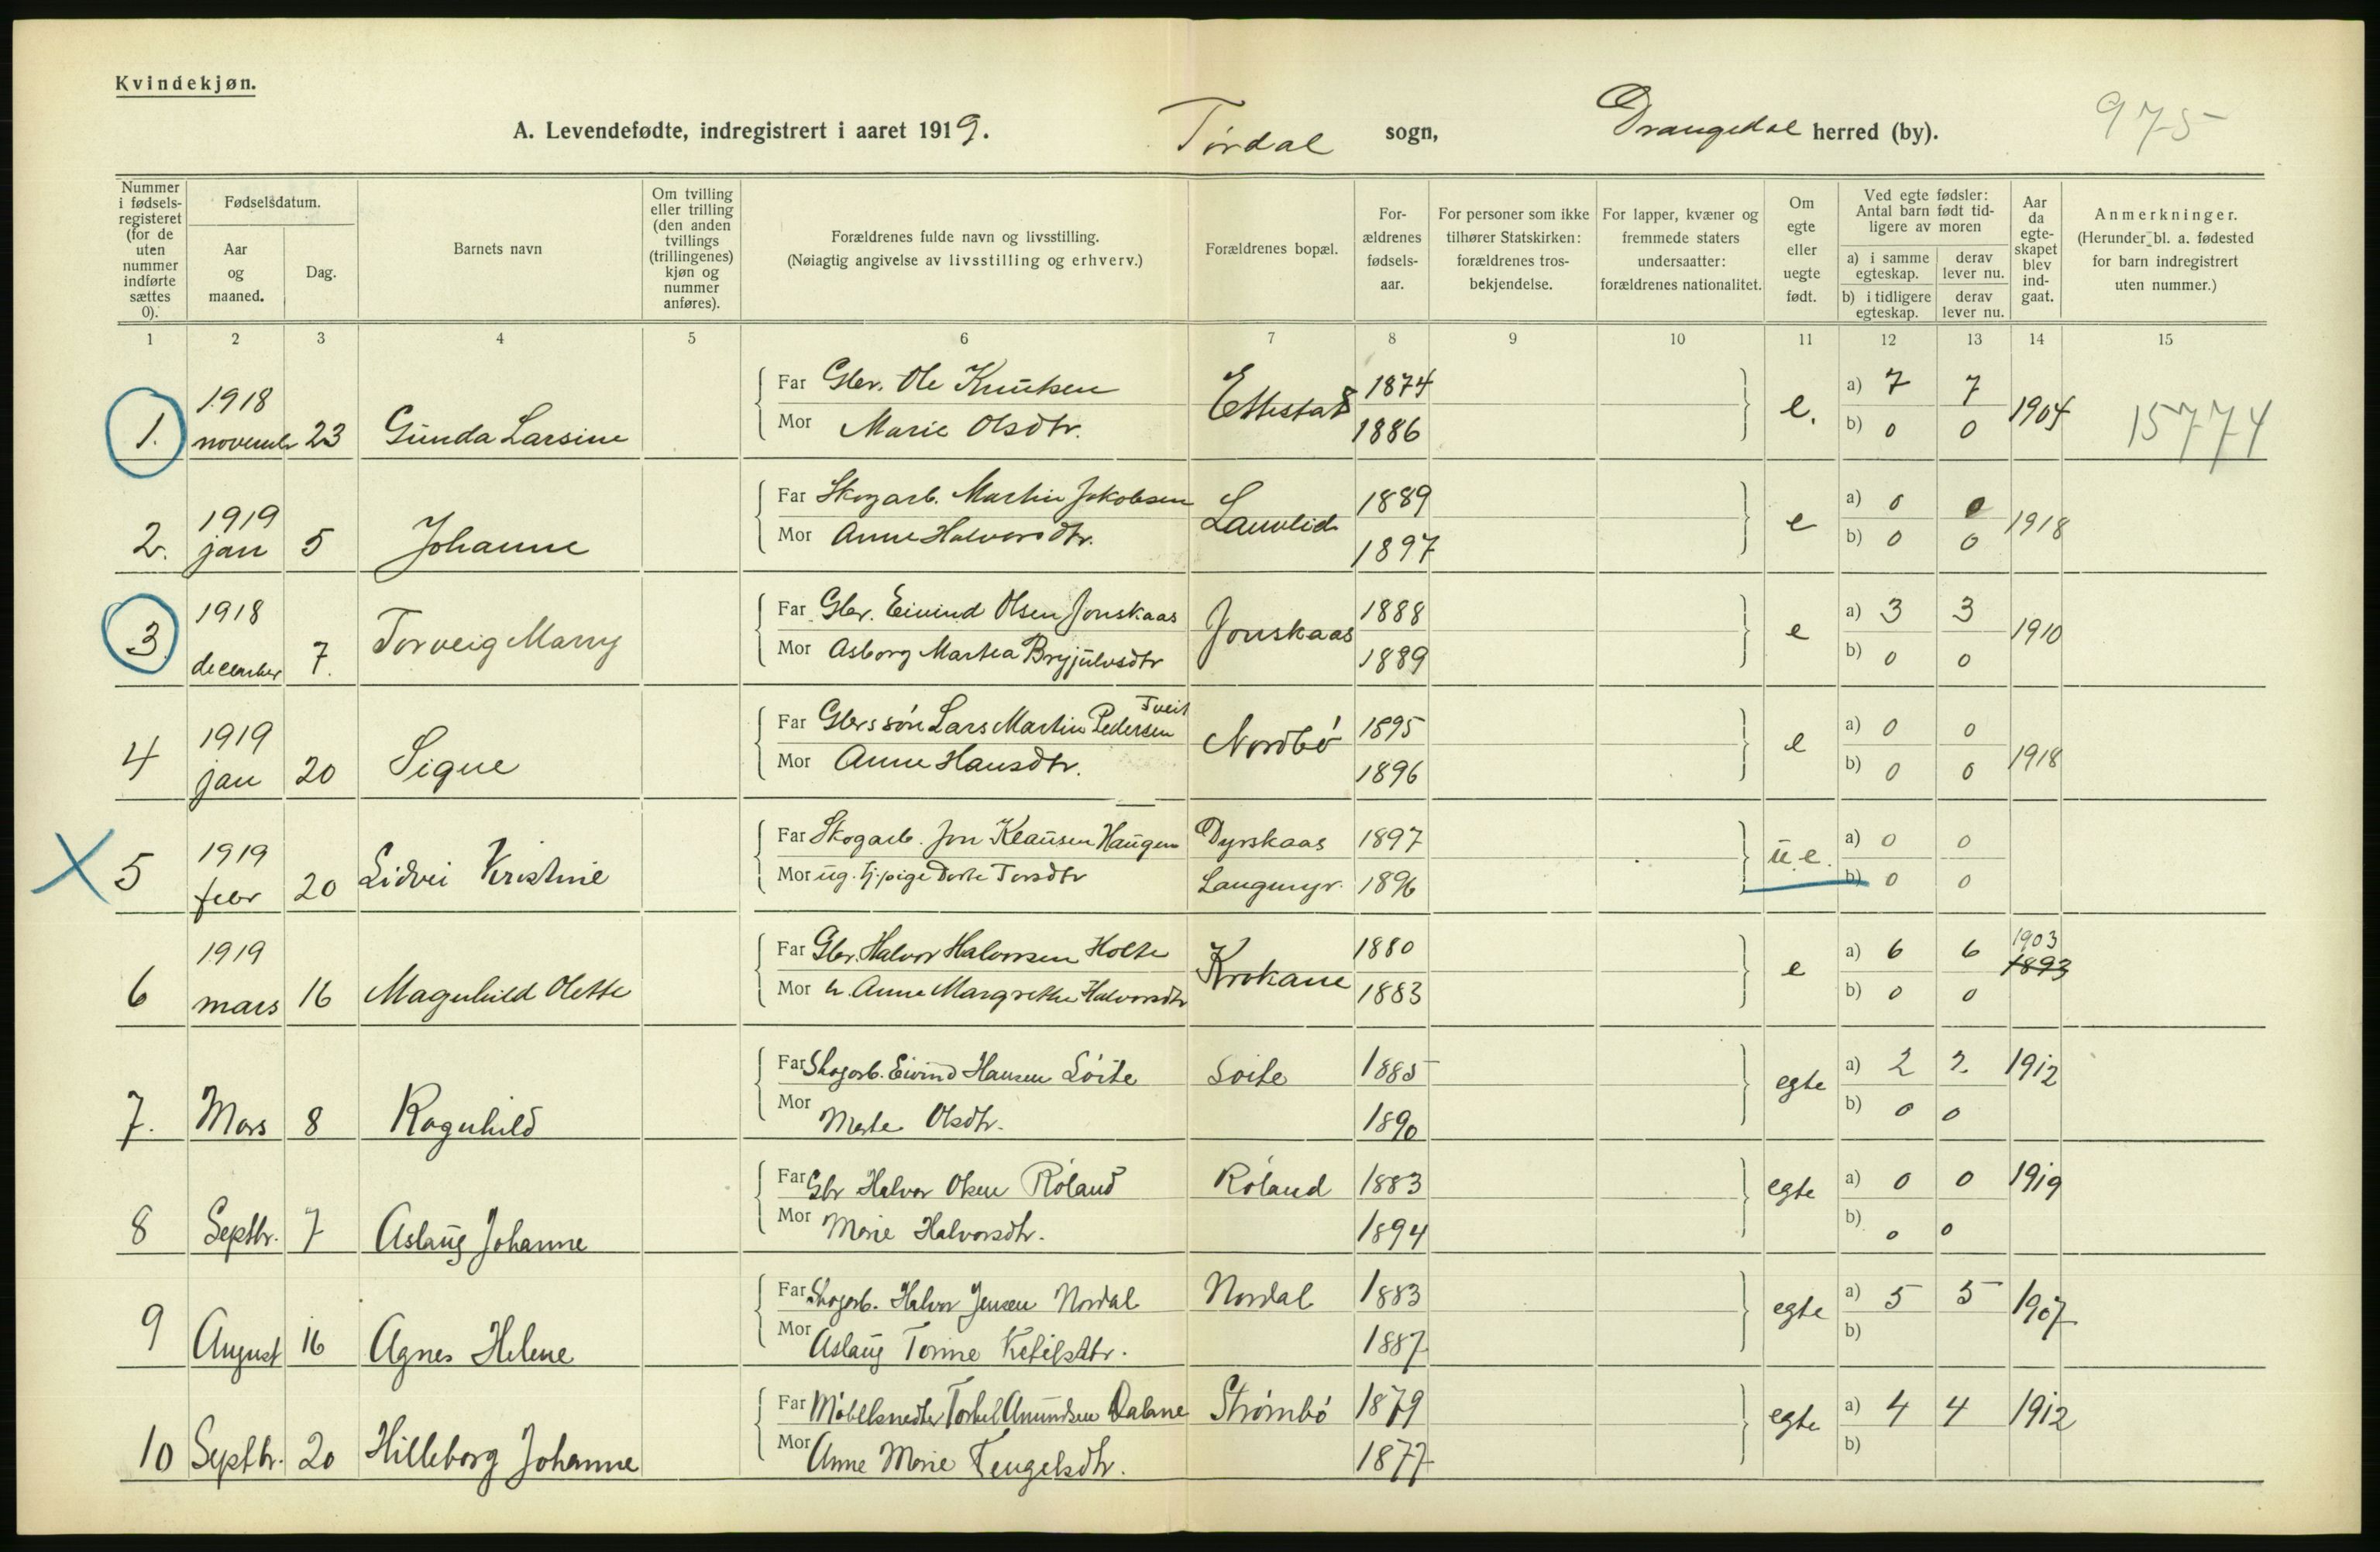 Kvindekjøn.
A. Levendefødte, indregistrert i aaret 1919. Tørdal sogn, Drangedal herred (by). 975
Nummer i fødsels-registeret (for de uten nummer indførte sættes 0).
Fødselsdatum.
Aar og maaned.
Dag.
Barnets navn
Om tvilling eller trilling (den anden tvillings (trillingenes) kjøn og nummer anføres).
Forældrenes fulde navn og livsstilling.
(Nøiagtig angivelse av livsstilling og erhverv.)
Forældrenes bopæl.
For-ældrenes fødsels-aar.
For personer som ikke tilhører Statskirken: forældrenes tros-bekjendelse.
For lapper, kvæner og fremmede staters undersaatter: forældrenes nationalitet.
Om egte eller uegte født.
Ved egte fødsler: Antal barn født tid-ligere av moren
a) i samme egteskap. derav lever nu.
b) i tidligere egteskap. derav lever nu.
Aar da egte-skapet blev ind-gaat.
Anmerkninger.
(Herunder bl. a. fødested for barn indregistrert uten nummer.)
1 2 3 4 5 6 7 8 9 10 11 12 13 14 15
1918 Far Gbr. Ole Knutsen 1874 a) 7 7
1. novembr 23 Gunda Larsine Mor Marie Olsdtr. Ettestad 1886 e. b) 0 0 1904 15774
1919 Far Skogarb. Martin Jakobsen 1889 a) 0 0
2. jan 5 Johanne Mor Anne Halvorsdtr. Lauvlid 1897 e b) 0 0 1918
1918 Far Gbr. Eivind Olsen Jonskaas 1888 a) 3 3
3 december 7. Torveig Marry Mor Asborg Martea Brynjulvsdtr Jonskaas 1889 e b) 0 0 1910
1919 Far Gbrs søn Lars Martin Pedersen Tveit 1895 a) 0 0
4 jan 20 Signe Mor Anne Hansdtr. Nordbø 1896 e b) 0 0 1918
1919 Far Skogarb. Jon Klausen Haugen Dyrskaas 1897 a) 0 0
5 febr 20 Lidvei Kristine Mor ug. tj.pige Dorte Torsdtr Langmyr. 1896 u.e. b) 0 0
1919 Far Gbr. Halvor Halvorsen Holte 1880 a) 6 6 1903
6 mars 16 Magnhild Olette Mor h. Anne Margrethe Halvorsdtr Krokane 1883 e b) 0 0 1893
Far Skogarb. Eivind Hansen Løite Loite 1885 a) 2 2 1912
7. Mars 8 Ragnhild Mor Marte Olsdtr. 1890 egte b) 0 0
Far Gbr Halvor Olsen Røland Røland 1883 a) 0 0 1919
8 Septbr. 7 Aslaug Johanne Mor Marie Halvorsdtr. 1894 egte b) 0 0
Far Skogarb. Halvor Jensen Nordal Nordal 1883 a) 5 5
9 August 16 Agnes Helene Mor Aslaug Tomine Ketilsdtr. 1887 egte b) 1907
Far Møbelsnedker Torkel Amundsen Dalane Strømbø 1879 a) 4 4 1912
10 Septbr. 20 Hilleborg Johanne Mor Anne Marie Tengelsdtr. 1877 egte b)